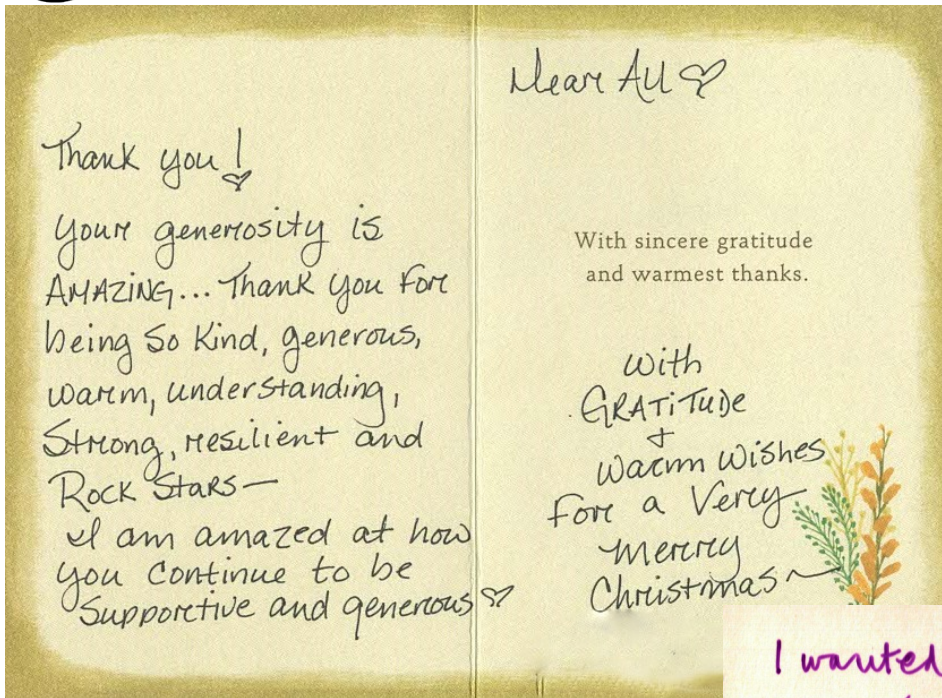 Thank you!
Your generosity is
AMAZING... Thank you For
being So Kind, generous,
warm, understanding,
Strong, resilient and
ROCK STARS—
I am amazed at how
you continue to be
Supportive and generous ♡
Dear All ♡
With sincere gratitude
and warmest thanks.
With
GRATiTUDe
+
Warm Wishes
For a Very
Merry
Christmas~
I wanted